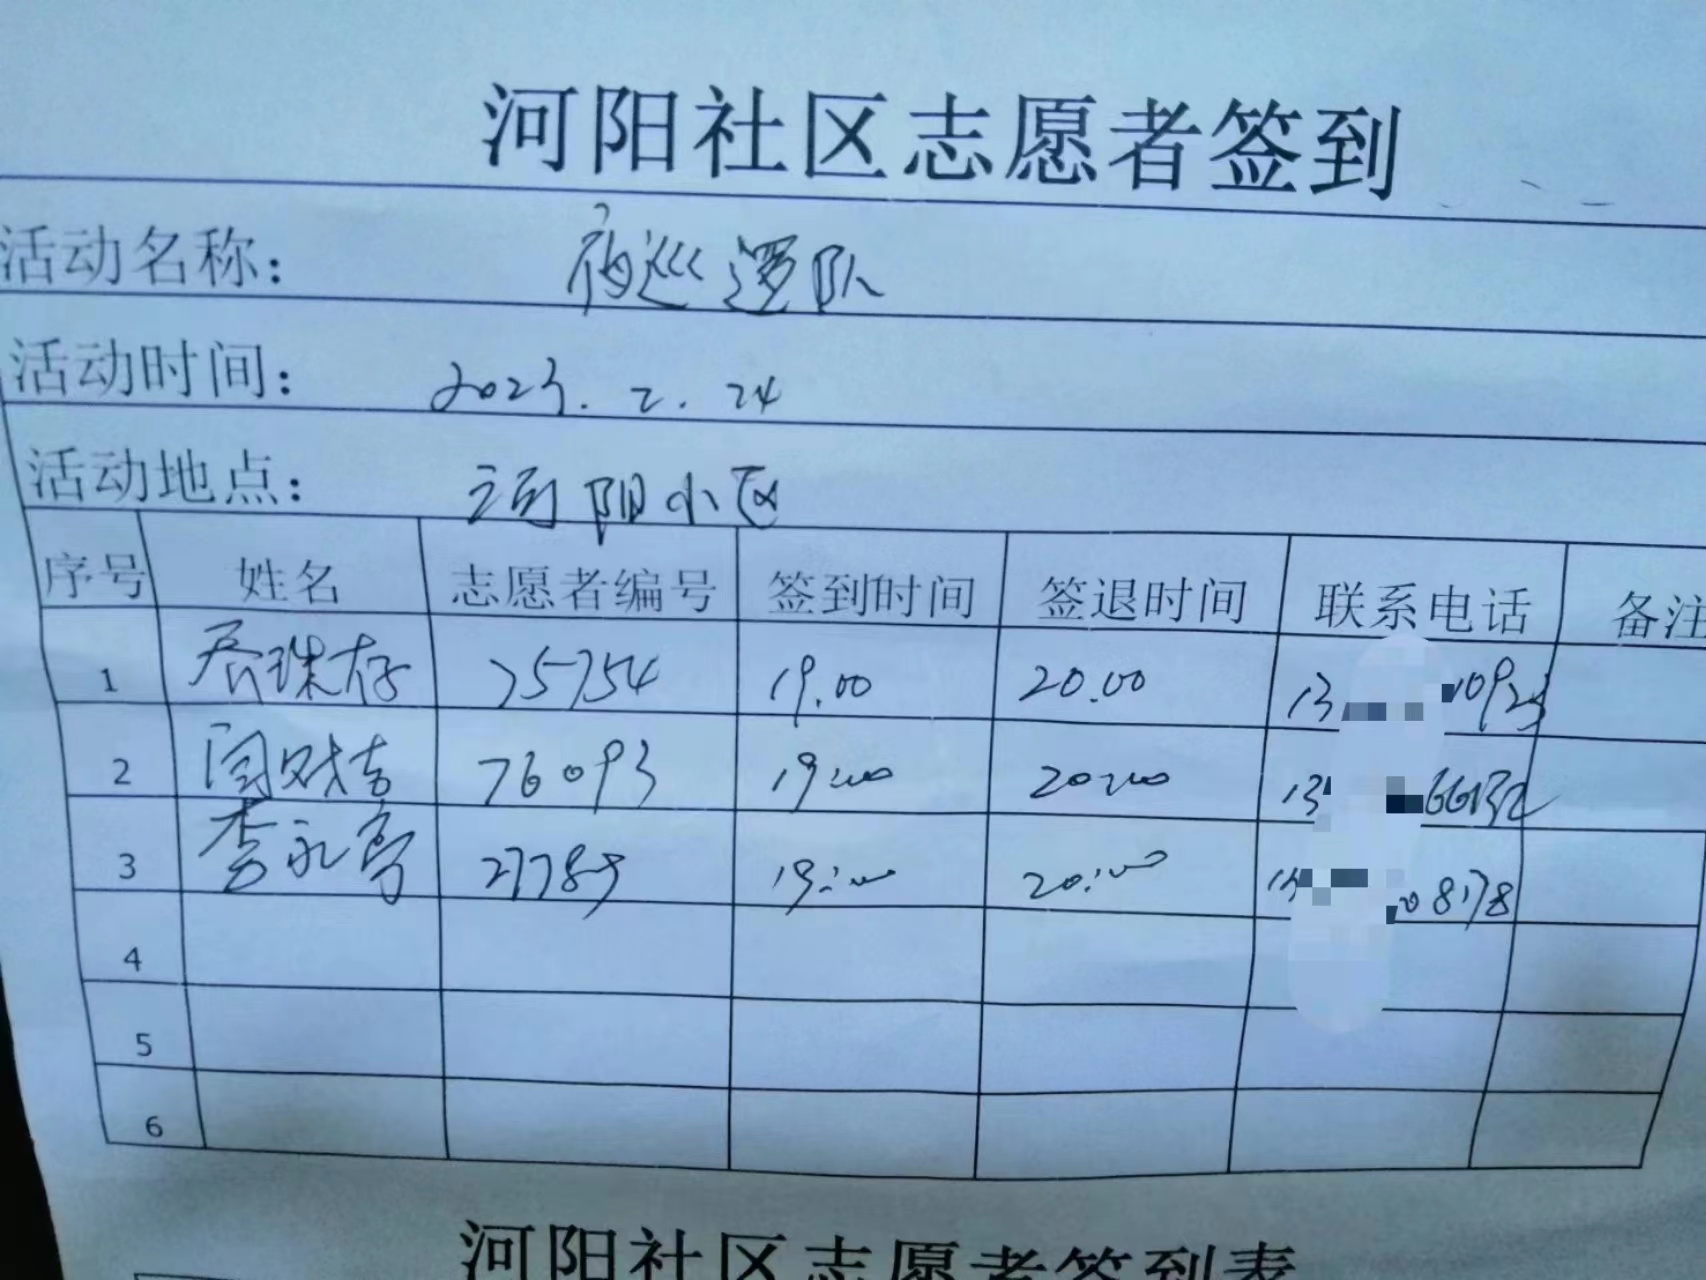 河阳社区志愿者签到
活动名称： 夜巡逻队
活动时间： 2023.2.24
活动地点： 河阳小区
序号 姓名 志愿者编号 签到时间 签退时间 联系电话 备注
1 75754 19.00 20.00 13 0923
2 76093 19:00 20:00 13 66132
3 李永亭 27789 19:00 20:00 08178
4
5
6
河阳社区志愿者签到表